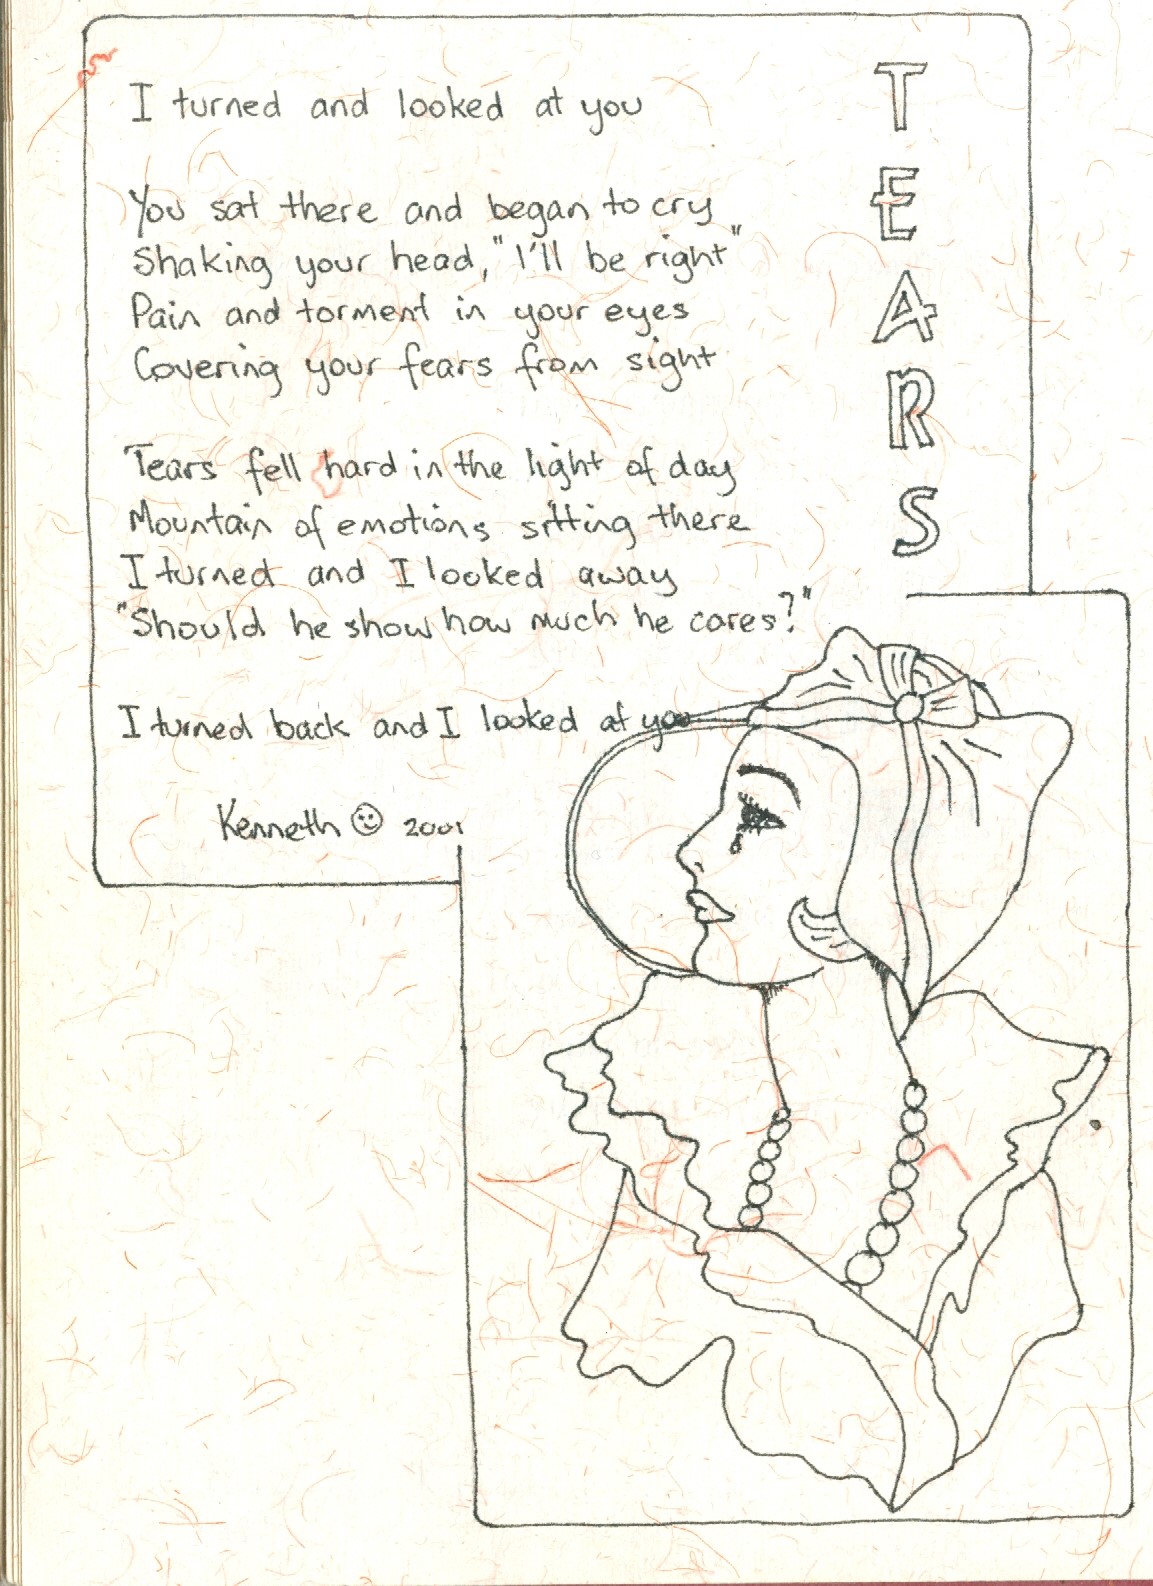 TEARS
I turned and looked at you
You sat there and began to cry
Shaking your head, "I'll be right"
Pain and torment in your eyes
Covering your fears from sight
Tears fell hard in the light of day
Mountain of emotions sitting there
I turned and I looked away
"Should he show how much he cares?"
I turned back and I looked at you
Kenneth ☺ 2001